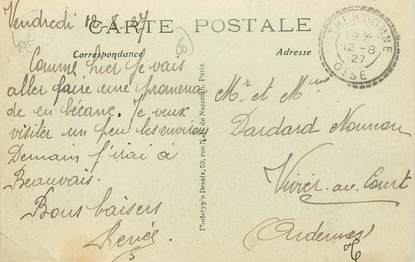 Vendredi 12-8-27
CARTE POSTALE
Correspondance
Adresse
THERDONNE
19
12-8
27
OISE
Comme hier je vais
aller faire une promenade
de en bécane. Je veux
visiter un peu les environs
Demain j'irai à
Beauvais.
Bons baisers
Renée
Phototypie Desaix, 53, Rue N.-D. de Nazareth, Paris
Mr et Mme
Dardard
Vivier-au-Court
(Ardennes)